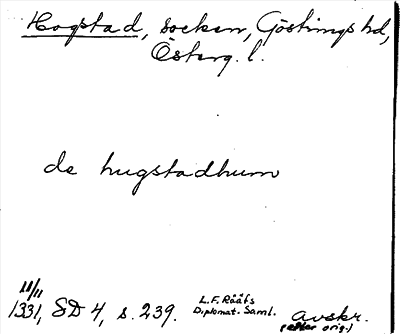 Hogstad, socken, Göstrings hd,
Österg. l.
de hugstadhum
11/11
1331, SD 4, s. 239. L.F. Rääfs
Diplomat. Saml. avskr.
(efter orig.)